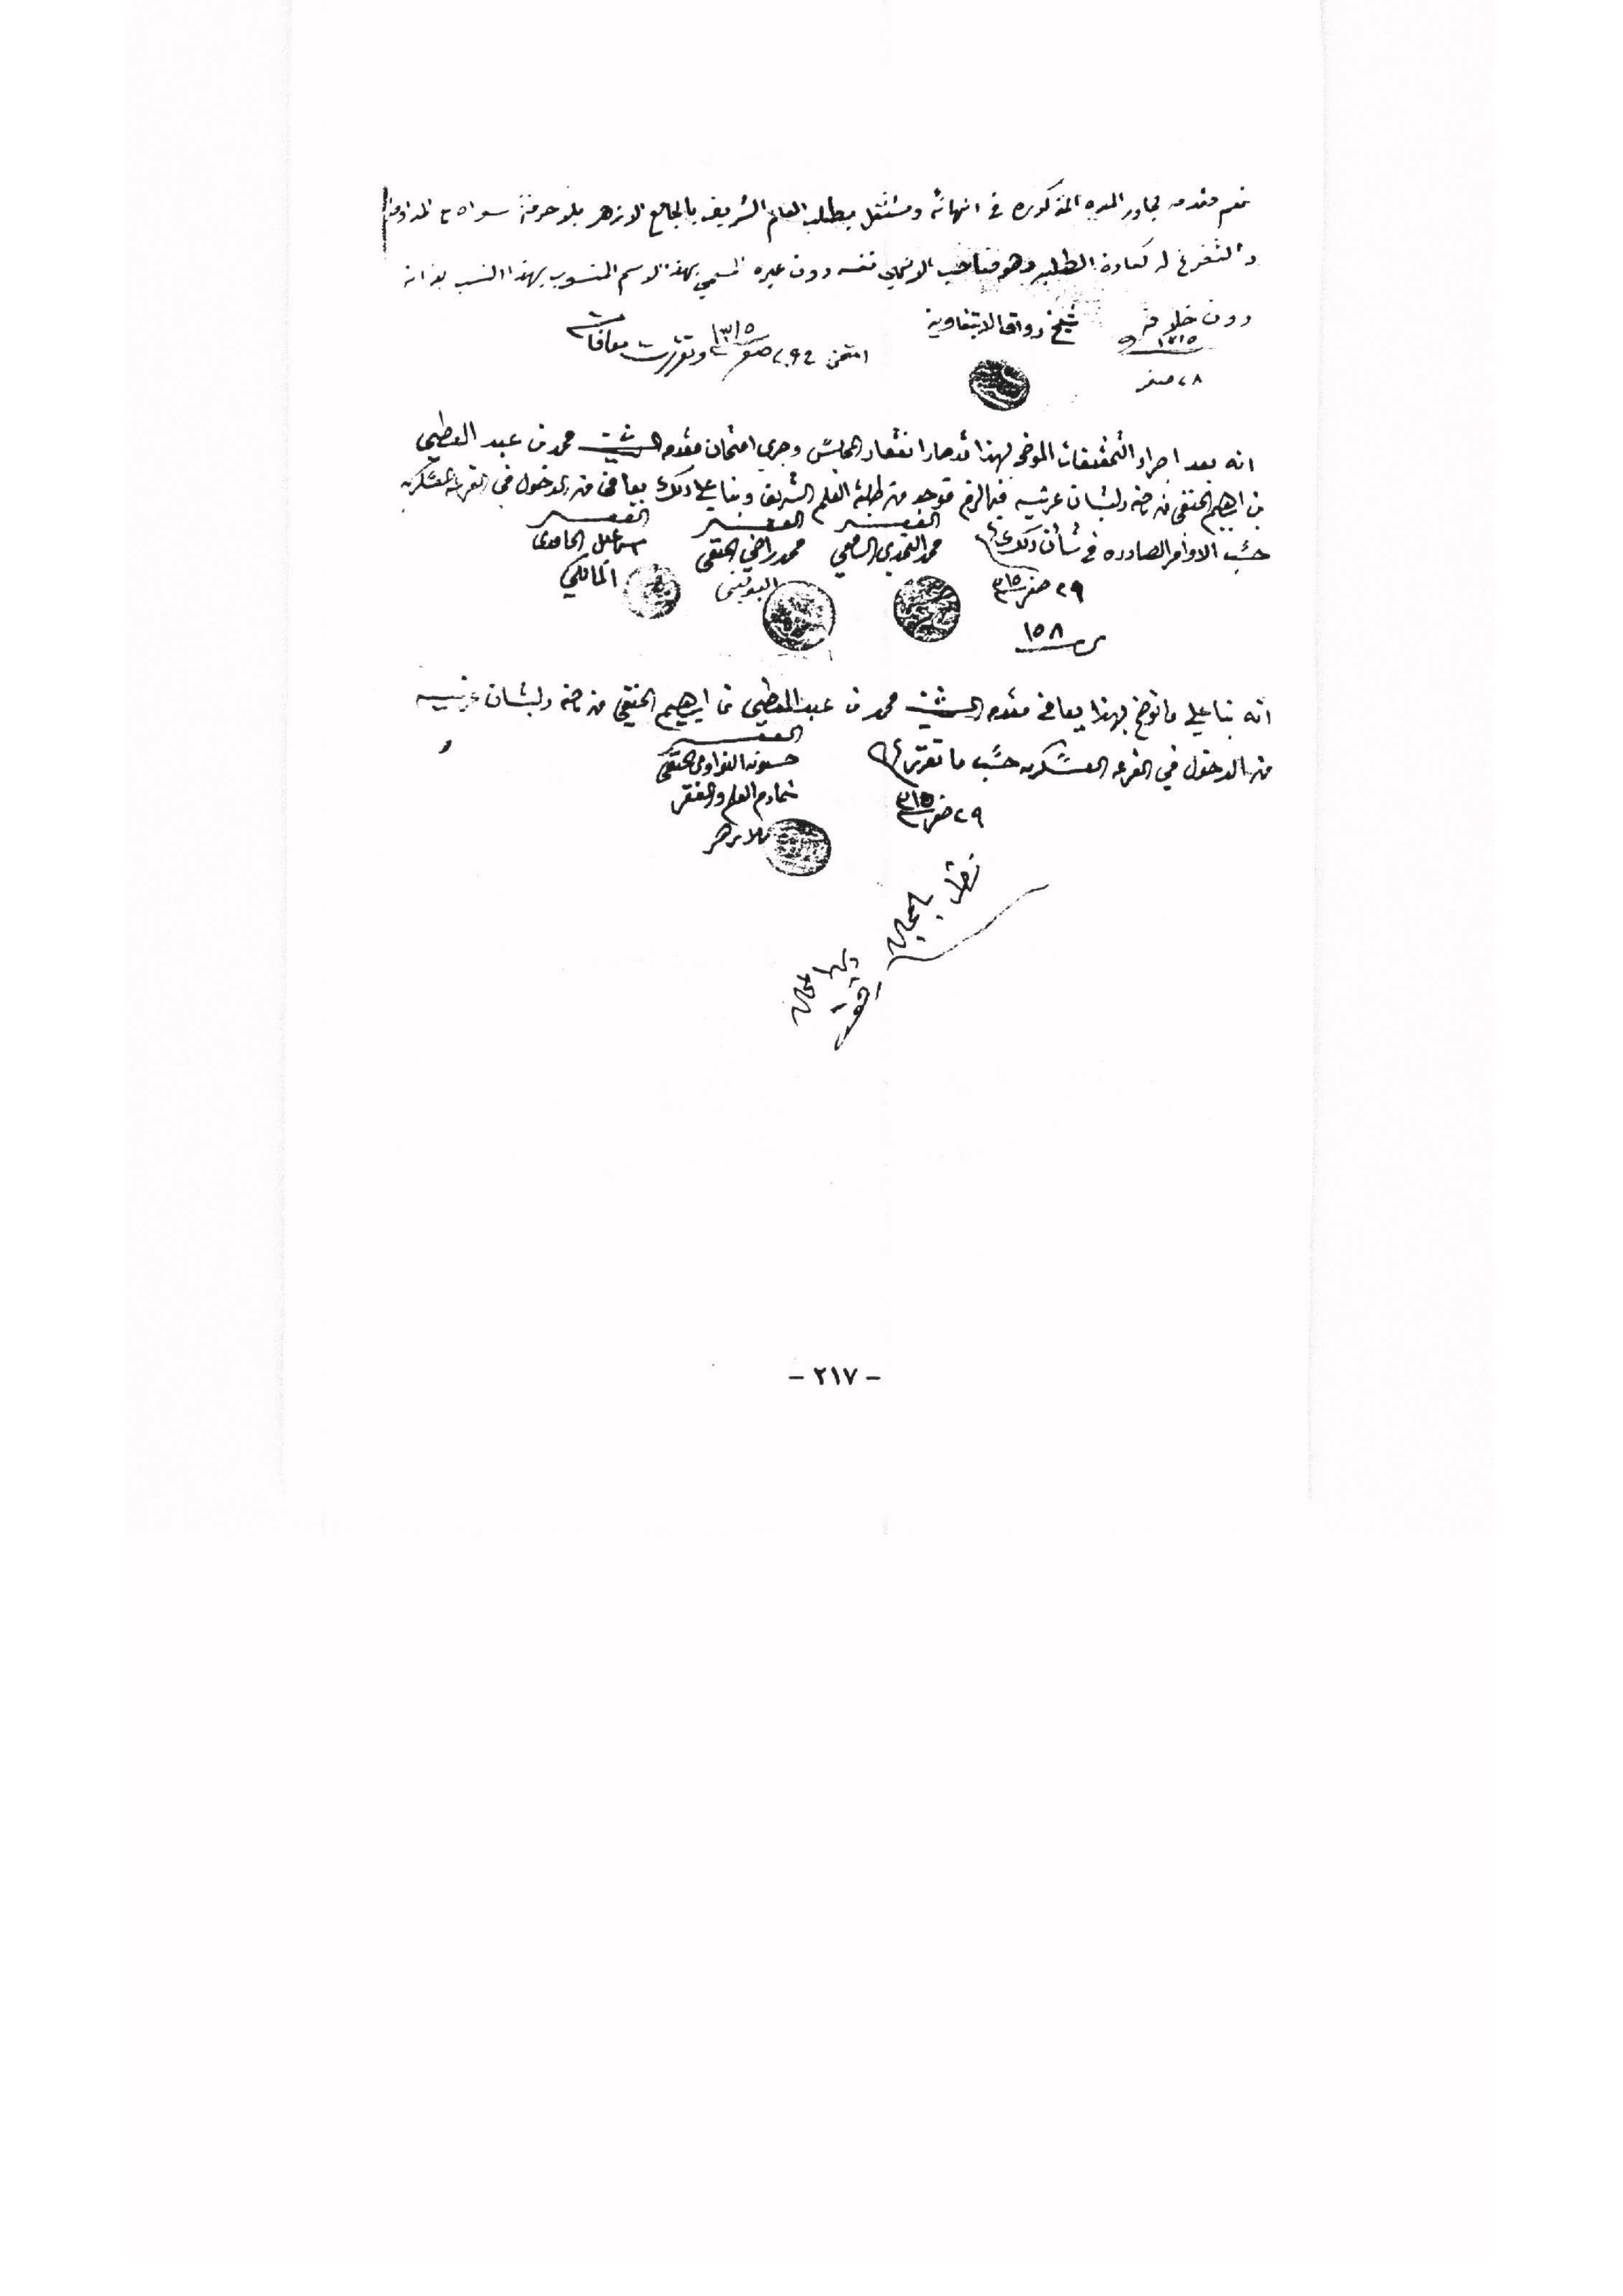 نعم مقدمه مجاور المده المذكوره في انهائه ومشتغل بطلب العلم الشريف بالجامع الازهر بلا حرفة سواه مع المداومة
والتفرغ له كعادة الطلبه وهو صاحب الانهاء نفسه دون غيره المسمى بهذا الاسم المنسوب بهذا النسب بذاته
دون خلافه شيخ رواق الابتغاوية
٢٨ صفر ١٣١٥
امتحن في ٢٩ صفر ١٣١٥ وتقررت معافاته
انه بعد اجراء التحقيقات الموضحه بهذا قد صار انعقاد المجلس وجرى امتحان مقدمه الشيخ محمد بن عبد المعطي
بن ابراهيم الحنفي من ناحية دلبشان غربيه فبالرقم فوجد من طلبة العلم الشريف وبناء على ذلك يعافى من الدخول في القرعه العسكريه
حسب الاوامر الصادره في شأن ذلك
الفقير محمد الشافعي
الفقير محمد راضي الحنفي
الفقير اسماعيل الحامدي المالكي
٢٩ صفر ٣١٥
١٥٨
انه بناء على ما توضح بهذا يعافى مقدمه الشيخ محمد بن عبد المعطي بن ابراهيم الحنفي من ناحية دلبشان غربيه
من الدخول في القرعه العسكريه حسب ما تقرر
٢٩ صفر ٣١٥
الفقير
حسونه النواوي الحنفي
خادم العلم والفقرا
بالازهر
- ٢١٧ -